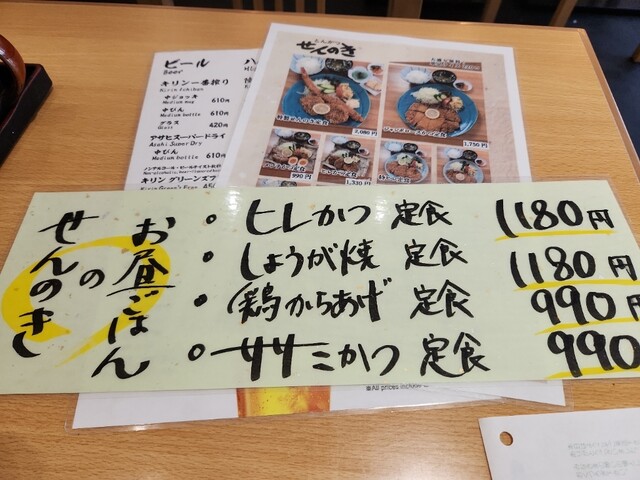 ビール
Beer
キリン一番搾り
Kirin Ichiban
中ジョッキ 610円
Medium mug
中びん 610円
Medium bottle
グラス 420円
Glass
アサヒスーパードライ
Asahi Super Dry
中びん 610円
Medium bottle
せんのき
2,080円
1,750円
990円
1,330円
お昼ごはん
の
せんのき
・ヒレかつ 定食 1180円
・しょうが焼 定食 1180円
・鶏からあげ 定食 990円
・ササミかつ 定食 990
※All prices include